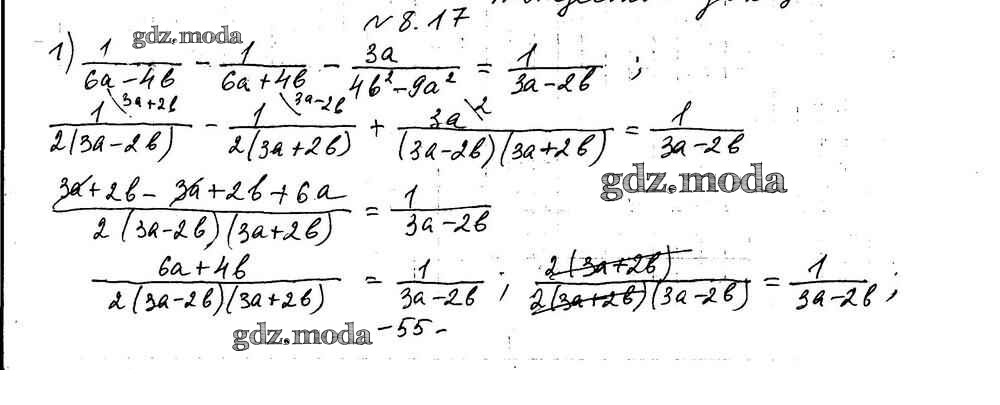 № 8.17
1) 1/(6a-4b) - 1/(6a+4b) - 3a/(4b²-9a²) = 1/(3a-2b) ;
gdz.moda
1\3a+2b/2(3a-2b) - 1\3a-2b/2(3a+2b) + 3a\2/(3a-2b)(3a+2b) = 1/(3a-2b)
gdz.moda
(3a+2b-3a+2b+6a)/2(3a-2b)(3a+2b) = 1/(3a-2b)
(6a+4b)/2(3a-2b)(3a+2b) = 1/(3a-2b) ; 2(3a+2b)/2(3a+2b)(3a-2b) = 1/(3a-2b) ;
gdz.moda
-55-